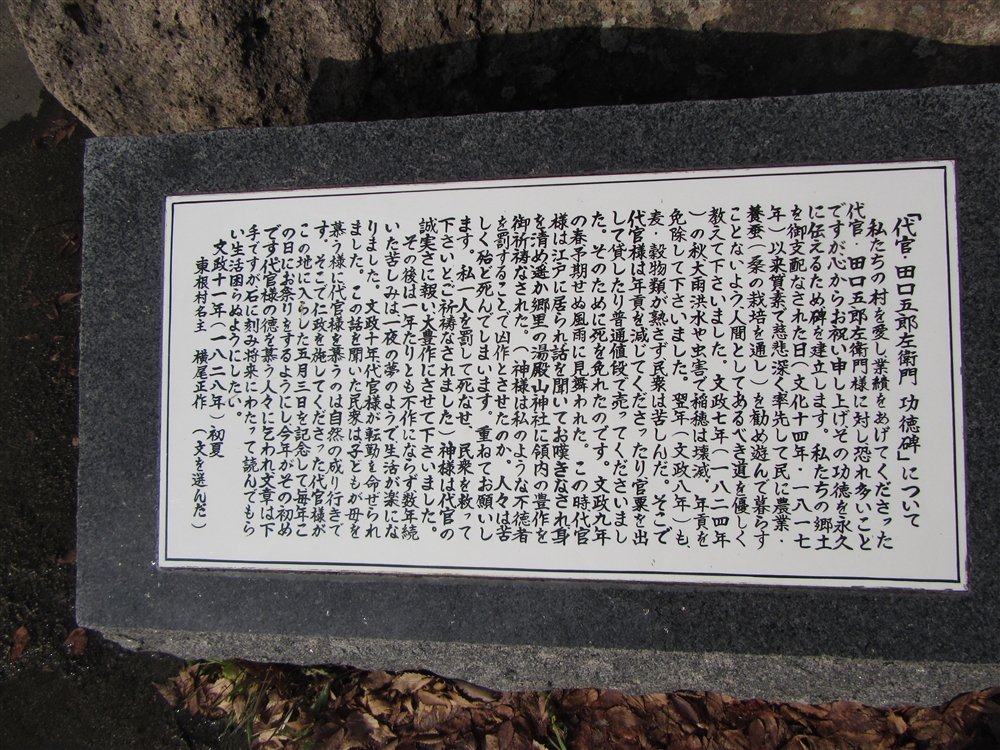 「代官・田口五郎左衛門　功徳碑」について
私たちの村を愛し業績をあげてくださった
代官・田口五郎左衛門様に対し恐れ多いこと
ですが心からお祝い申し上げその功徳を永久
に伝えるため碑を建立します。私たちの郷土
を御支配なされた日（文化十四年・一八一七
年）以来質素で慈悲深く率先して民に農業・
養蚕（桑の栽培を通し）を勧め遊んで暮らす
ことないよう人間としてあるべき道を優しく
教えて下さいました。文政七年（一八二四年
）の秋大雨洪水や虫害で稲穂は壊滅、年貢を
免除して下さいました。翌年（文政八年）も、
麦・穀物類が熟さず民衆は苦しんだ。そこで
代官様は年貢を減じてくださったり官粟を出
して貸したり普通値段で売ってくださいまし
た。そのために死を免れたのです。文政九年
の春予期せぬ風雨に見舞われた。この時代官
様は江戸に居られ話を聞いてお嘆きなされ身
を清め遥か郷里の湯殿山神社に領内の豊作を
御祈祷なされた。（神様は私のような不徳者
を罰することで凶作とさせたのか。人々は苦
しく殆ど死んでしまいます。重ねてお願いし
ます。私一人を罰して死なせ、民衆を救って
下さいとご祈祷なされました）神様は代官の
誠実さに報い大豊作にさせて下さいました。
その後は一年たりとも不作にならず数年続
いた苦しみは一夜の夢のようで生活が楽にな
りました。文政十年代官様が転勤を命ぜられ
ました。この話を聞いた民衆は子どもが母を
慕う様に代官様を慕うのは自然の成り行きで
す。そこで仁政を施してくださった代官様が
この地に入らした五月三日を記念して毎年こ
の日にお祭りをするようにし今年がその初め
です代官様の徳を慕う人々に乞われ文章は下
手ですが石に刻み将来にわたって読んでもら
い生活困らぬようにしたい。
文政十一年（一八二八年）初夏
東根村名主　横尾正作　（文を選んだ）